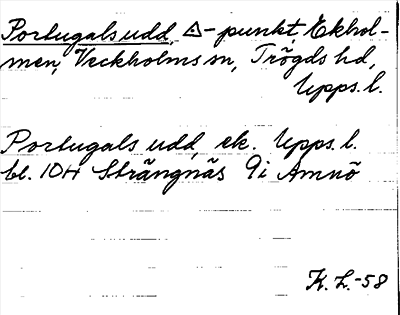 Portugals udd, △-punkt, Ekhol-
men, Veckholms sn, Trögds hd,
Upps. l.
Portugals udd, ek. Upps. l.
bl. 10H Strängnäs 9i Amnö
K.L.-58